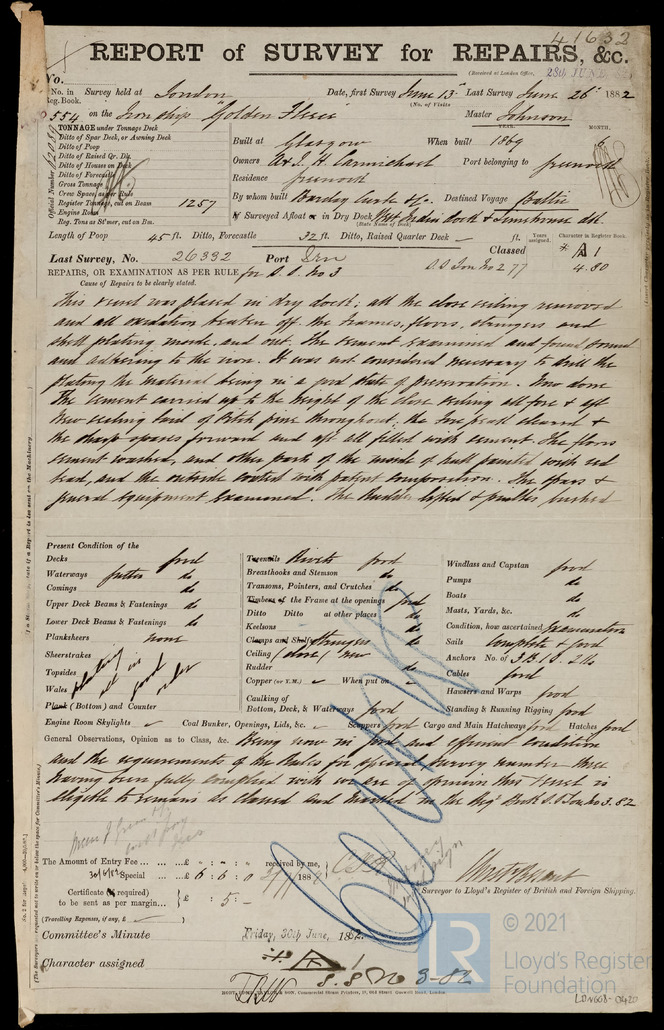 41632
REPORT of SURVEY for REPAIRS, &c.
(Received at London Office, 28th JUNE 82)
No.
No. in Survey held at London Date, first Survey June 13th Last Survey June 26th 1882
Reg. Book. (No. of Visits
554 on the Iron ship "Golden Fleece" Master Johnson
TONNAGE under Tonnage Deck
Ditto of Spar Deck, or Awning Deck
Ditto of Poop
Ditto of Raised Qr. Dk.
Ditto of Houses on Dk.
Ditto of Forecastle
Gross Tonnage
Crew Space, as per Rule
Register Tonnage, cut on Beam 1257
Engine Room
Reg. Tons as St'mer, cut on Bm.
Official Number
YEAR. MONTH.
Built at Glasgow When built 1869 8
Owners A & J. H. Carmichael Port belonging to Greenock
Residence Greenock
By whom built Barclay Curle & Co. Destined Voyage Baltic
If Surveyed Afloat or in Dry Dock
(State Name of Dock)
Length of Poop 45 ft. Ditto, Forecastle 32 ft. Ditto, Raised Quarter Deck — ft.
Years assigned. Character in Register Book
Last Survey, No. 26332 Port Irn Classed * A 1
S.S. Lon No 2 77 4.80
REPAIRS, OR EXAMINATION AS PER RULE for S. S. No 3
Cause of Repairs to be clearly stated.
This vessel was placed in dry dock; all the close ceiling removed
and all oxidation beaten off the frames, floors, stringers and
shell plating inside, and out. The cement examined and found sound
and adhering to the iron. It was not considered necessary to drill the
plating the material being in a good state of preservation. Now done
The cement carried up to the height of the close ceiling all fore & aft
New ceiling laid of Pitch pine throughout; the fore peak cleaned &
the sharp spaces forward and aft all filled with cement. The floors
cement washed, and other parts of the inside of hull painted with red
lead, and the outside coated with patent composition. The spars &
general equipment examined. The Rudder lifted & pintles bushed
Present Condition of the
Decks good
Waterways gutter do
Comings do
Upper Deck Beams & Fastenings do
Lower Deck Beams & Fastenings do
Planksheers none
Sheerstrakes
Topsides
Wales
Plank (Bottom) and Counter
plating all in good order
Treenails Rivets good
Breasthooks and Stemson do
Transoms, Pointers, and Crutches do
Timbers of the Frame at the openings good
Ditto Ditto at other places do
Keelsons do
Clamps and Shelf Stringers do
Ceiling (close) new
Rudder do
Copper (or Y.M.) When put on
Caulking of
Bottom, Deck, & Waterways good
Windlass and Capstan good
Pumps do
Boats do
Masts, Yards, &c. do
Condition, how ascertained Examination
Sails Complete & good
Anchors No. of 3 B. 1 S. 2 Ks
Cables good
Hawsers and Warps good
Standing & Running Rigging good
Engine Room Skylights Coal Bunker, Openings, Lids, &c. Scuppers good Cargo and Main Hatchways good Hatches good
General Observations, Opinion as to Class, &c. Being now in good and efficient condition
and the requirements of the Rules for special survey number three
having been fully complied with we are of opinion this vessel is
eligible to remain as classed and marked in the Reg. Book S.S. Lon No 3.82
The Amount of Entry Fee ... £ : : received by me,
30/6/82 Special ... £ 6 : 6 : 0
Certificate (if required)
to be sent as per margin... £ : 5 : -
(Travelling Expenses, if any, £ )
Surveyor to Lloyd's Register of British and Foreign Shipping.
Committee's Minute Friday, 30th June, 1882.
Character assigned A 1
S.S No 3-82
© 2021
LR
Lloyd's Register
Foundation
LDN608-0420